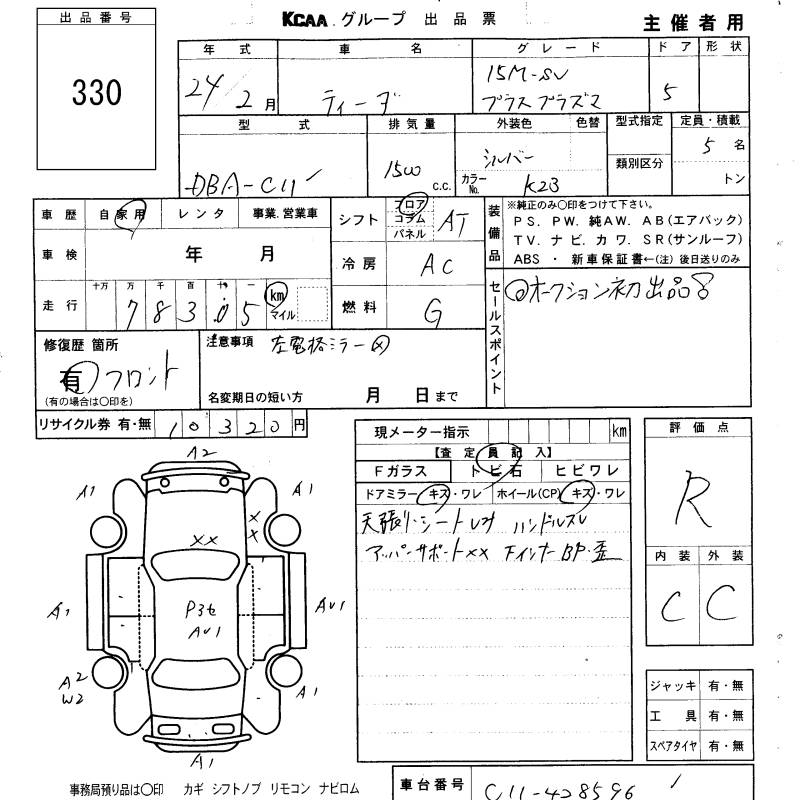 出品番号
330
KCAA グループ 出品票
主催者用
年式 車名 グレード ドア 形状
24/2月 ティーダ 15M-SV プラスプラズマ 5
型式 排気量 外装色 色替 型式指定 定員・積載
DBA-C11 1500 c.c. シルバー カラーNo. K23 類別区分 5名 トン
車歴 自家用 レンタ 事業.営業車
シフト フロア コラム パネル AT
装備品
※純正のみ〇印をつけて下さい。
PS. PW. 純AW. AB(エアバック)
TV. ナビ. カワ. SR(サンルーフ)
ABS ・ 新車保証書←(注) 後日送りのみ
車検 年 月
冷房 AC
走行 十万 万 千 百 十 一 78305 km マイル
燃料 G
セールスポイント
◎オークション初出品
修復歴 箇所
有 フロント
(有の場合は〇印を)
注意事項 左電格ミラー
名変期日の短い方 月 日まで
リサイクル券 有・無 10320円
現メーター指示 km
【査定員記入】
Fガラス トビ石 ヒビワレ
ドアミラー キズ・ワレ ホイール(CP) キズ・ワレ
天張り・シートシミ ハンドルスレ
アッパーサポートXX Fインナー BP・歪
評価点
R
内装 外装
C C
A2
A1 A1
X
X
XX
P3セ
AU1
A1 AU1
A2
W2
A1
A1
ジャッキ 有・無
工具 有・無
スペアタイヤ 有・無
事務局預り品は〇印 カギ シフトノブ リモコン ナビロム
車台番号 C11-428596